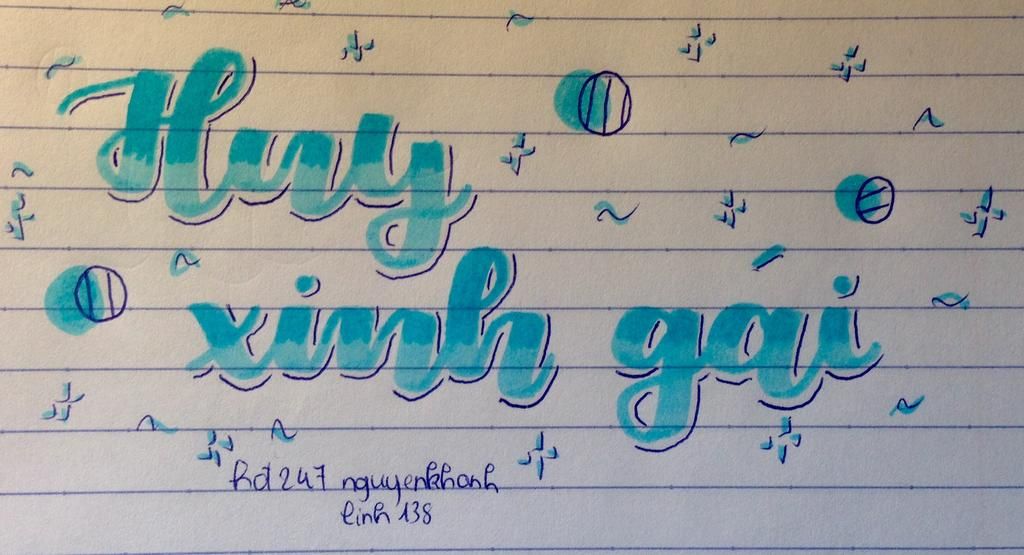 Huy
xinh gái
hd247 nguyenkhanh
linh 138